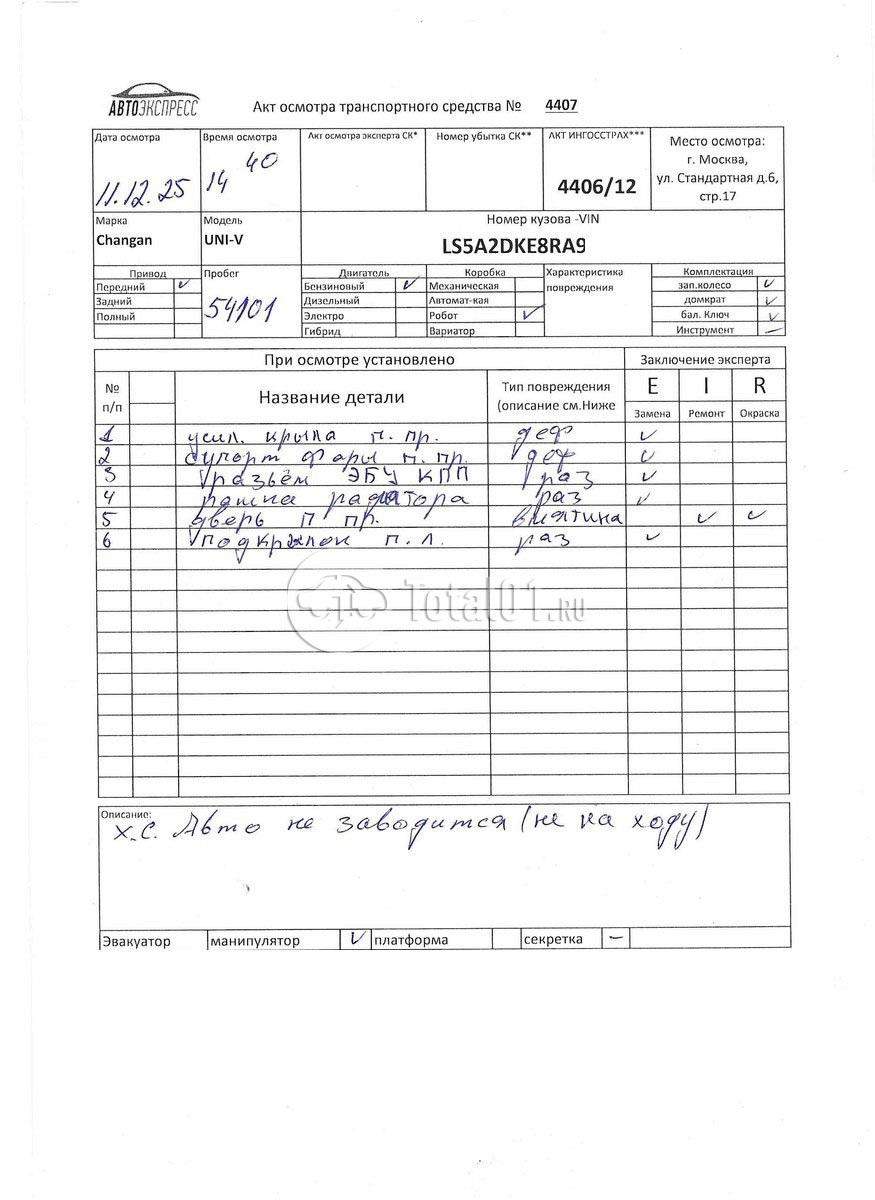 АВТОЭКСПРЕСС
Акт осмотра транспортного средства № 4407
Дата осмотра
11.12.25
Время осмотра
14 40
Акт осмотра эксперта СК*
Номер убытка СК**
АКТ ИНГОССТРАХ***
4406/12
Место осмотра:
г. Москва,
ул. Стандартная д.6,
стр.17
Марка
Changan
Модель
UNI-V
Номер кузова -VIN
LS5A2DKE8RA9
Привод
Передний ✓
Задний
Полный
Пробег
54101
Двигатель
Бензиновый ✓
Дизельный
Электро
Гибрид
Коробка
Механическая
Автомат-кая
Робот ✓
Вариатор
Характеристика
повреждения
Комплектация
зап.колесо ✓
домкрат ✓
бал. Ключ ✓
Инструмент —
При осмотре установлено
Заключение эксперта
№
п/п
Название детали
Тип повреждения
(описание см.Ниже
E I R
Замена Ремонт Окраска
1 усил. крыла п. пр. деф ✓
2 супорт фары п. пр. деф ✓
3 разъём ЭБУ КПП раз ✓
4 рамка радиатора раз ✓
5 дверь П пр. вмятина ✓ ✓
6 подкрылок п. л. раз ✓
Total01.RU
Описание:
Х.С. Авто не заводится (не на ходу)
Эвакуатор манипулятор ✓ платформа секретка —